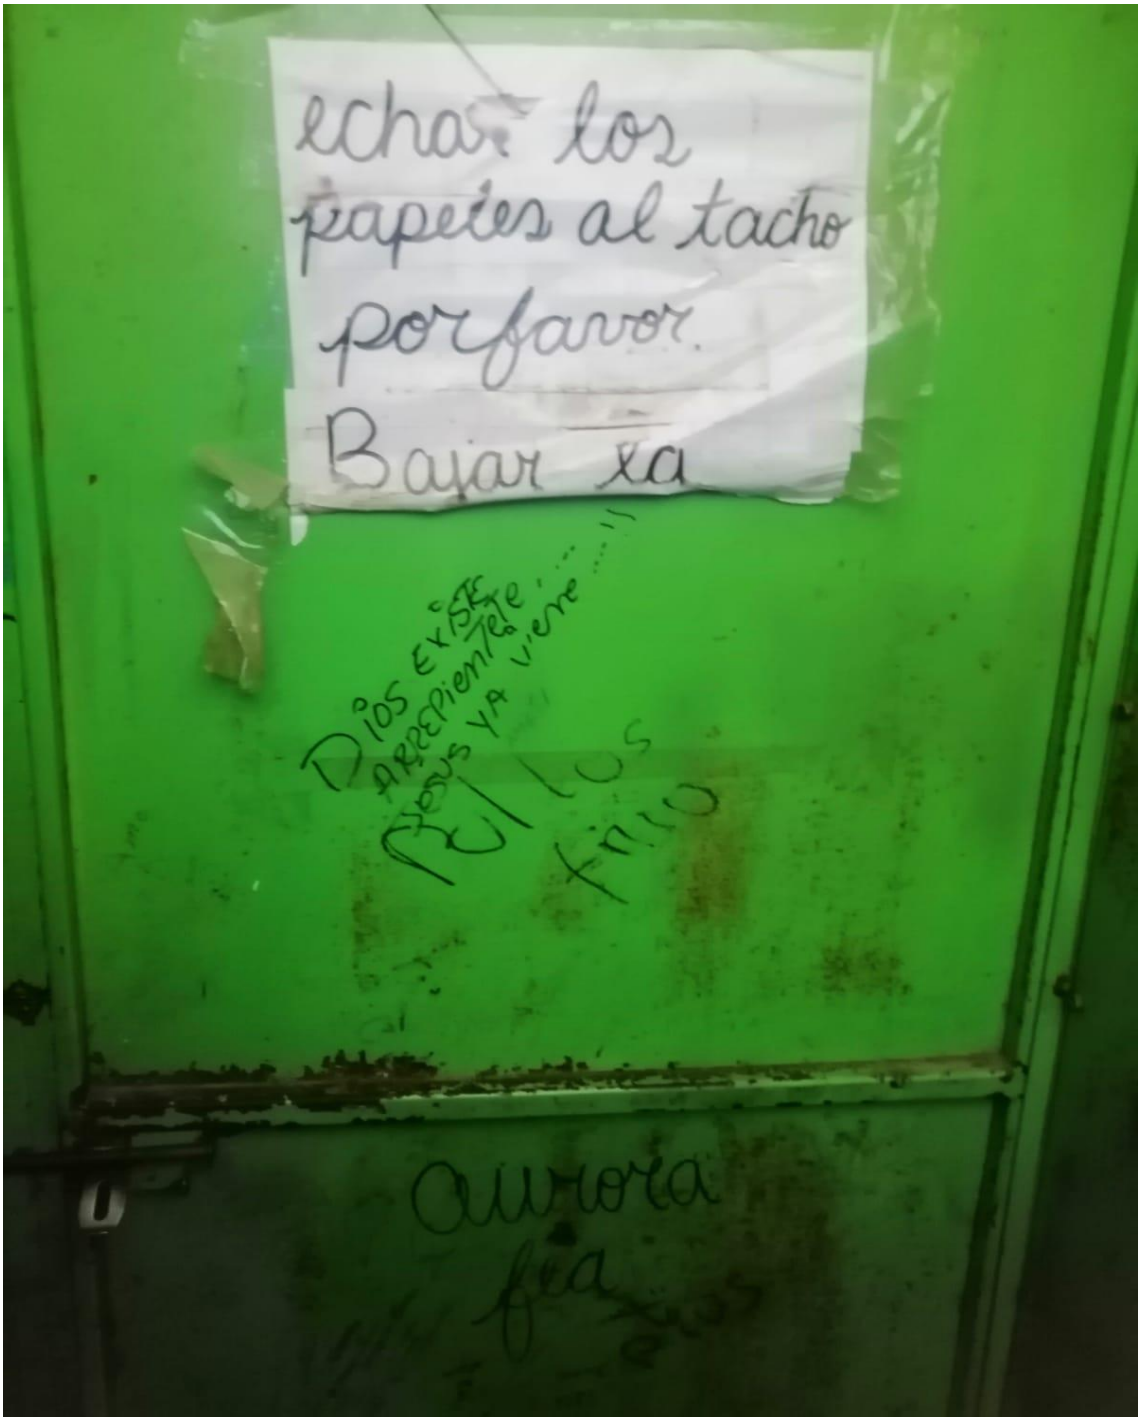 echar los
papeles al tacho
porfavor.
Bajar la
DiOS EXiSTE
ARREPiENTETE....
JESUS YA ViENE....!!
aurora
fea